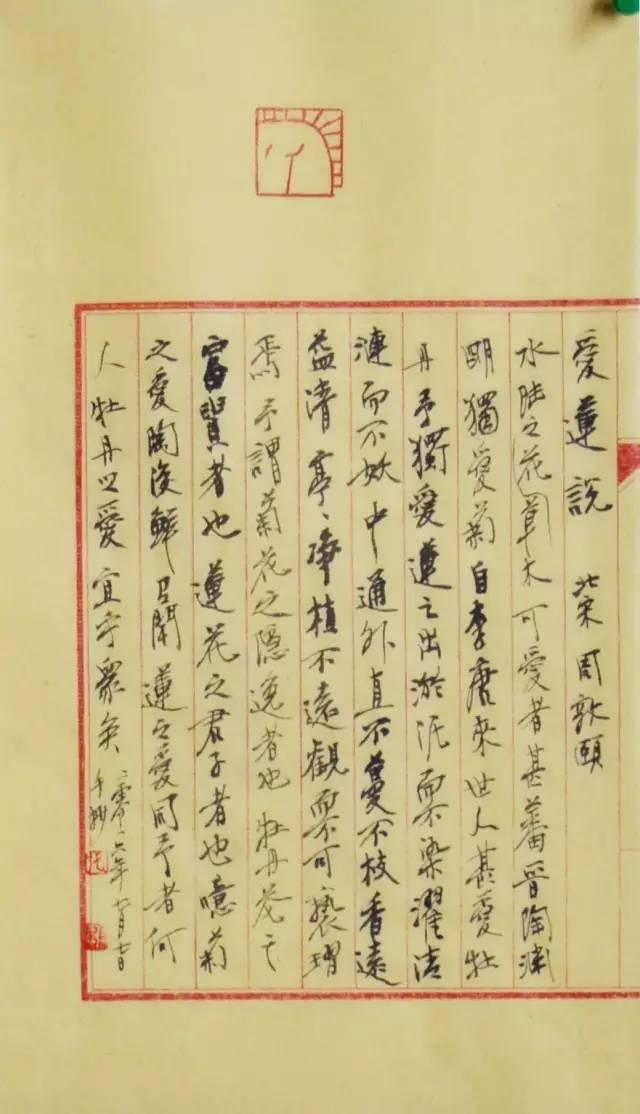 愛蓮說 北宋 周敦頤
水陸之花草木可愛者甚蕃晉陶渊
明獨愛菊自李唐來世人甚愛牡
丹予獨愛蓮之出淤泥而不染濯清
漣而不妖中通外直不蔓不枝香遠
益清亭、淨植不遠觀而不可褻
焉予謂菊花之隱逸者也牡丹花之
富貴者也蓮花之君子者也噫菊
之愛陶後鮮有聞蓮之愛同予者何
人牡丹之愛宜乎眾矣
二零一六年
手抄